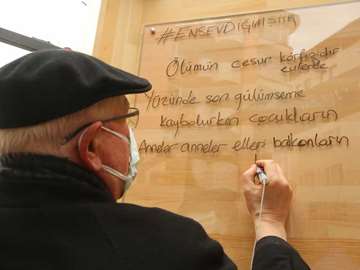 #ENSEVDİĞİMŞİİR
Ölümün cesur körfezidir
evlerde
Yüzünde son gülümseme
kaybolurken çocukların
Anneler anneler elleri balkonların